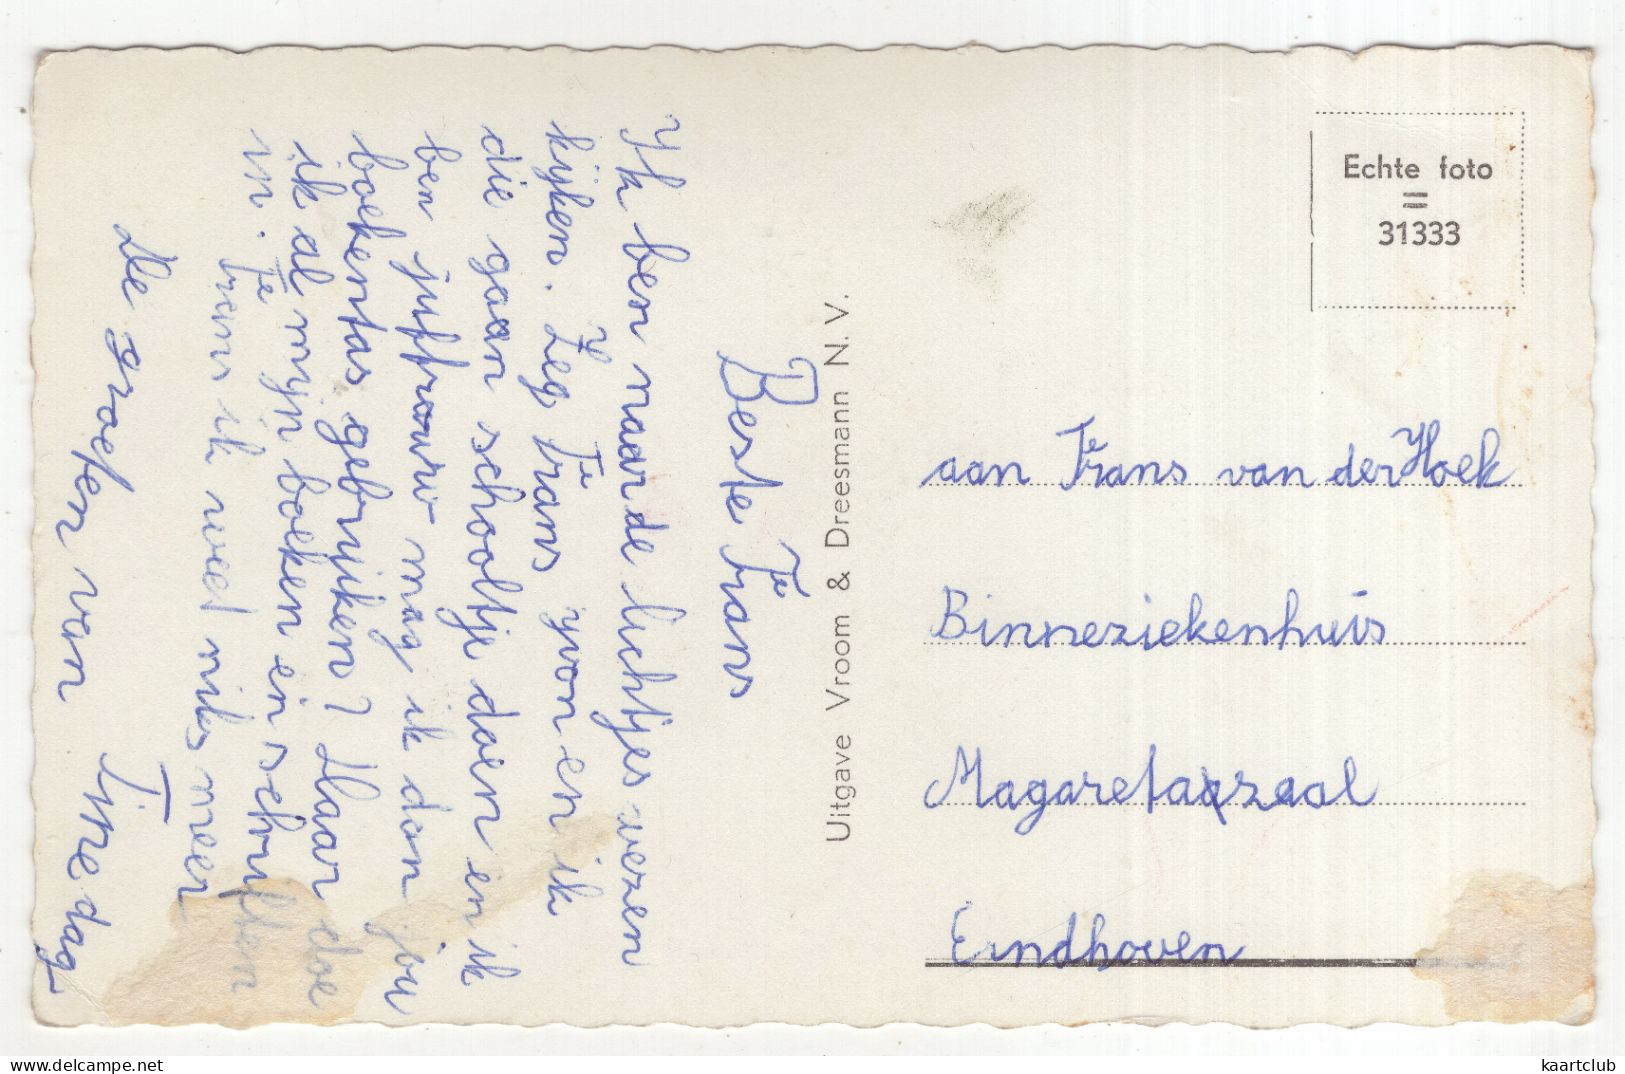 Beste Frans
Ik ben naar de luchtjes wezen
kijken. Zeg Frans yvon en ik
die gaan schooltje doen en ik
ben juffrouw mag ik dan jou
boekentas gebrijken? Daar doe
ik al mijn boeken in schriften
in. Frans ik weet niks meer
de groeten van Tine dag
Uitgave Vroom & Dreesmann N.V.
Echte foto
31333
aan Frans van der Hoek
Binneziekenhuis
Magaretazaal
Eindhoven
kaartclub